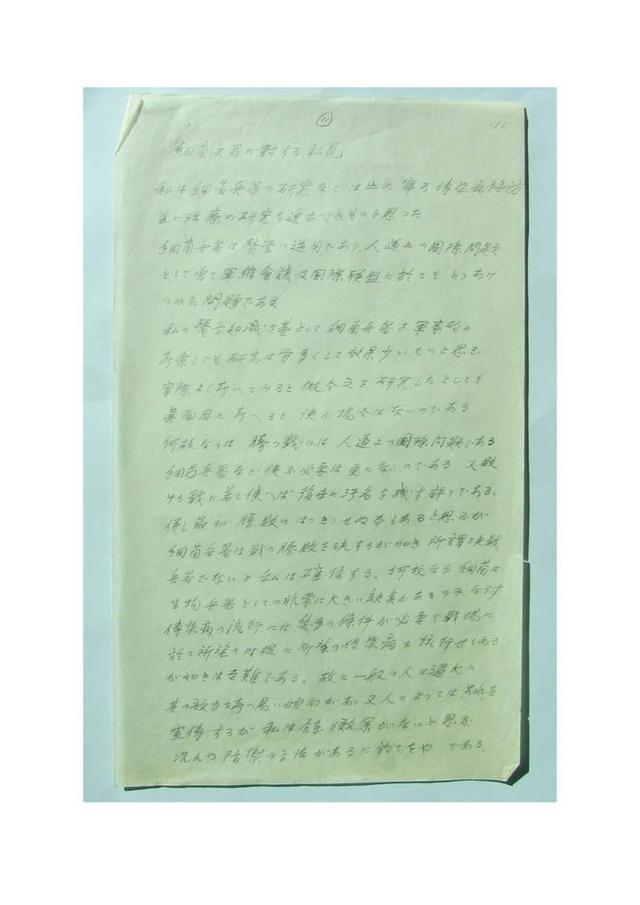 ⑪ 11.
細菌兵器に対する私見
私は細菌兵器の研究などは止め寧ろ傳染病豫防
並に治療の研究を進むべきものと思った
細菌兵器は醫学の逆用であり、人道上の國際問題
として嘗て軍縮會議及國際聯盟に於てもとりあげ
られた問題である
私の醫学知識を基として細菌兵器を軍事的に
考察しても研究は労多くして效果少いものと思ふ、
実際よく考へてみると仮令之を研究したとしても
真面目に考へると使ふ場合はないのである
何故ならば勝つ戦には人道上の國際問題である
細菌兵器など使ふ必要は更にないのである 又敗
ける戦に若し使へば後世に汚名を残す許りである、
併し最初勝敗のはつきりせぬ時もあると思ふが
細菌兵器は戦の勝敗を決するが如き所謂決戦
兵器でないと私は確信する、何故なら細菌は
生物兵器としての非常に大きい缺点があるのみならず
傳染病の流行には幾多の條件が必要で戦場に
於て所望の時機に所望の傳染病を流行せしめる
が如きは至難である。故に一般の人は過大に
其の效力を考へ易い傾向があり又人によっては其れを
宣傳するが私は余り效果がないと思ふ
况んや防禦の方法があるに於てをや である、